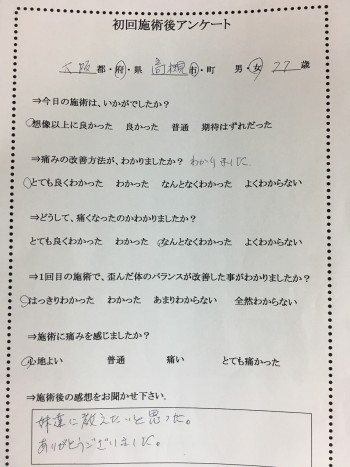 初回施術後アンケート
大阪 都・府・県 高槻 市・町 男・女 27 歳
⇒今日の施術は、いかがでしたか?
想像以上に良かった 良かった 普通 期待はずれだった
⇒痛みの改善方法が、わかりましたか? わかりました
とても良くわかった わかった なんとなくわかった よくわからない
⇒どうして、痛くなったのかわかりましたか?
とても良くわかった わかった なんとなくわかった よくわからない
⇒1回目の施術で、歪んだ体のバランスが改善した事がわかりましたか?
はっきりわかった わかった あまりわからない 全然わからない
⇒施術に痛みを感じましたか?
心地よい 普通 痛い とても痛かった
⇒施術後の感想をお聞かせ下さい.
妹達に教えたいと思った。
ありがとうございました。